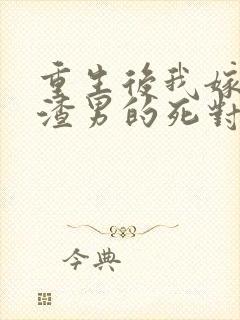 重生後我嫁
渣男的死對
今典